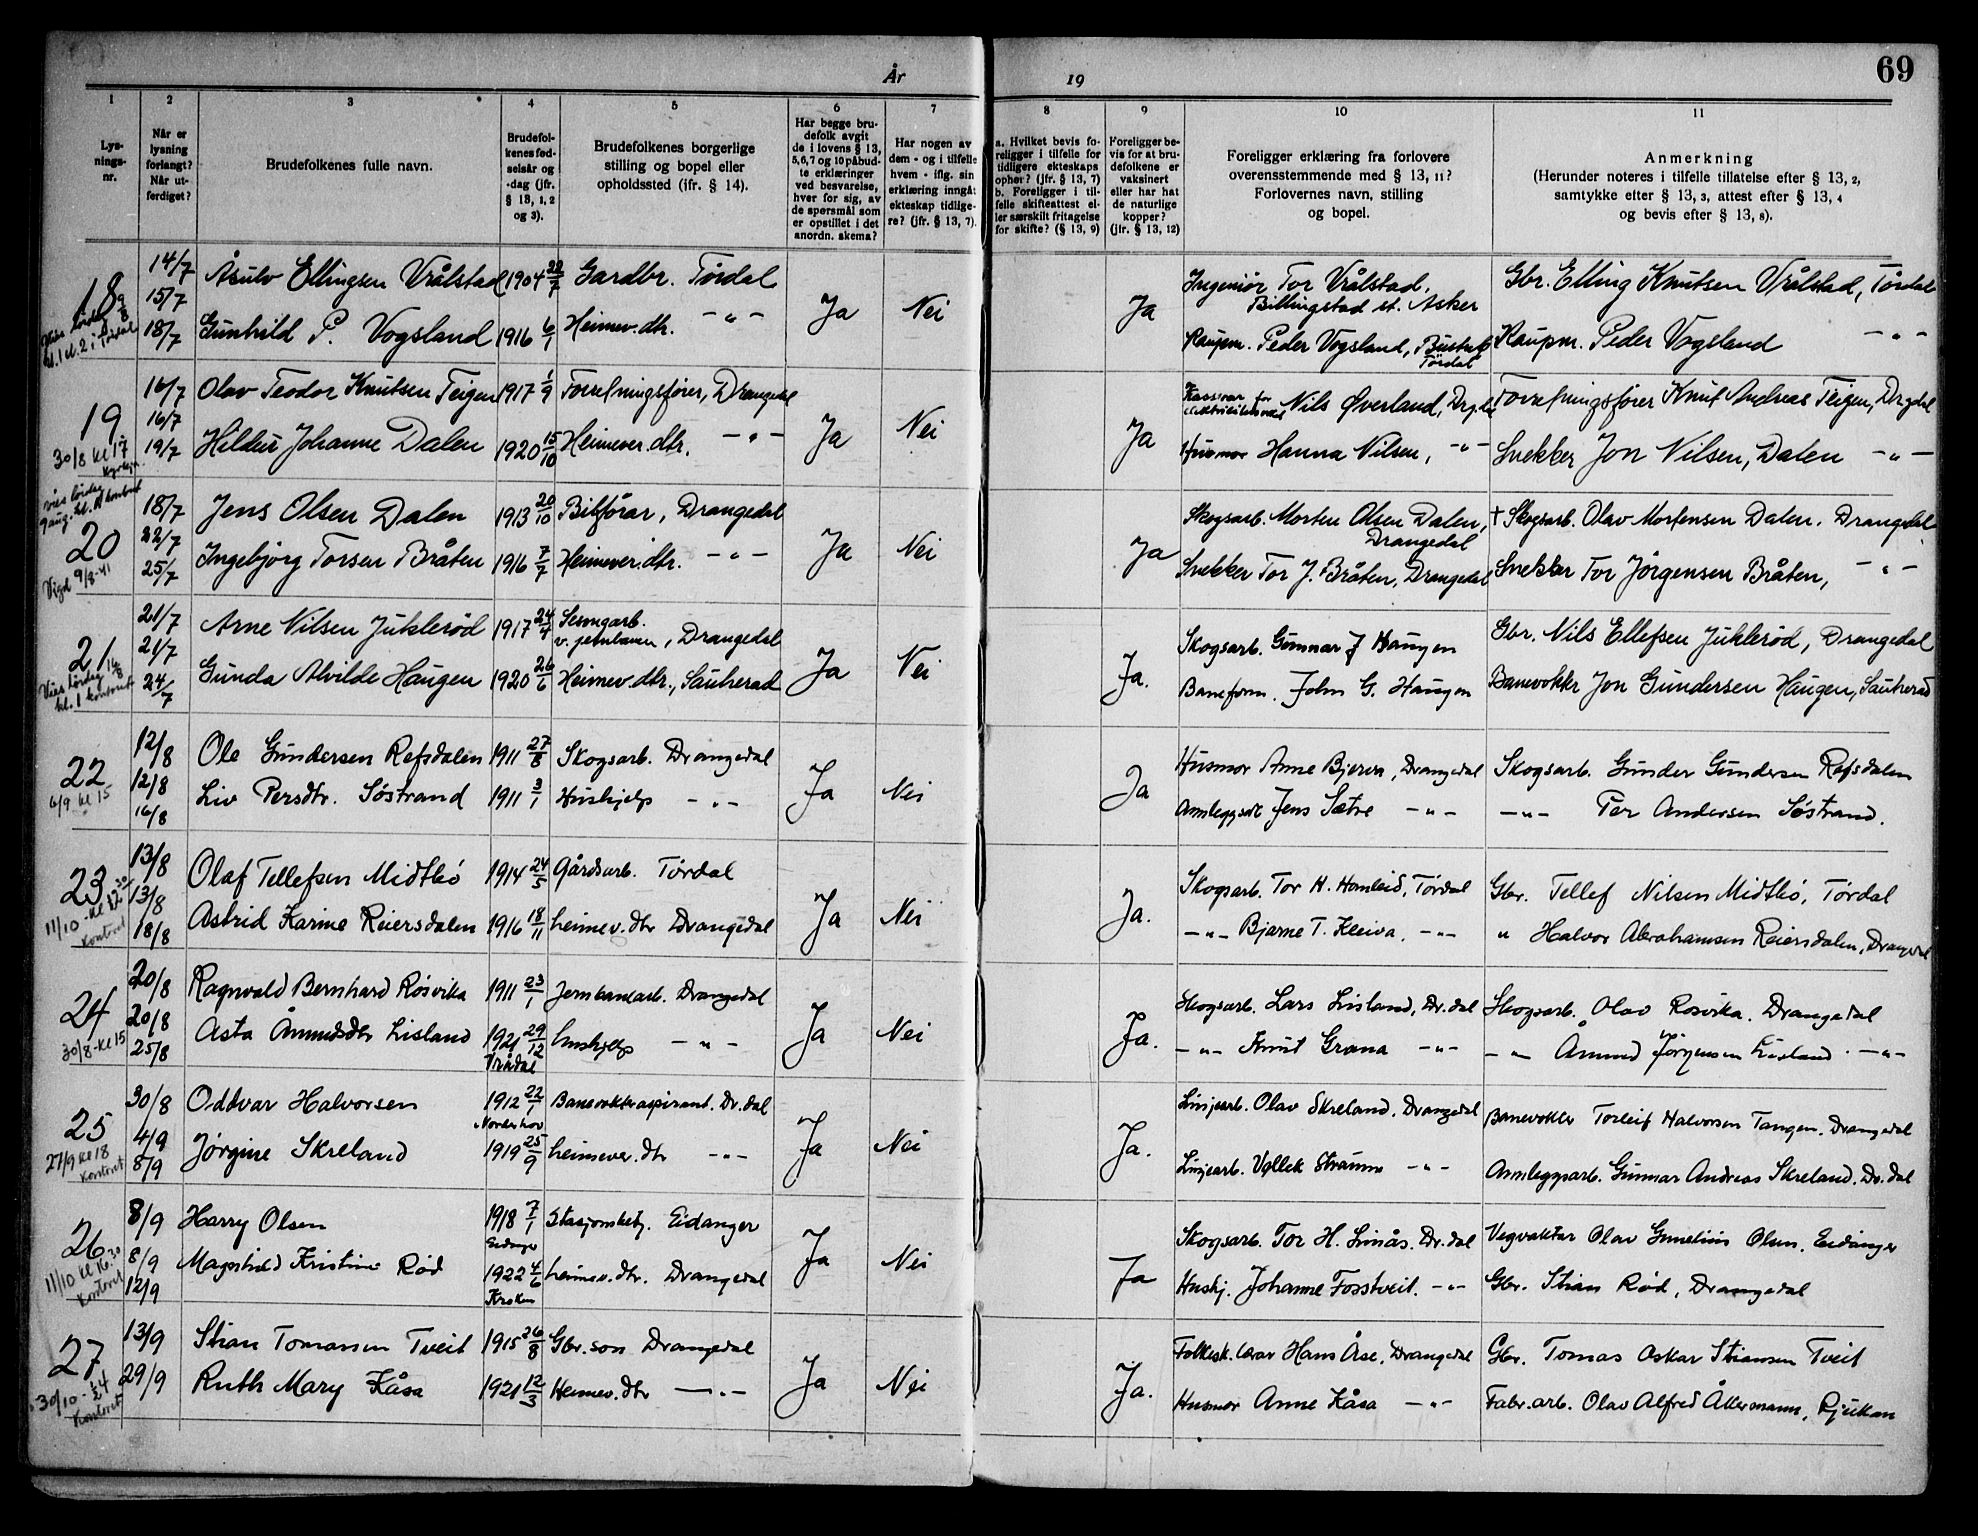 69
År
19
1 2 3 4 5 6 7 8 9 10 11
Lys-
nings-
nr.
Når er
lysning
forlangt?
Når ut-
ferdiget?
Brudefolkenes fulle navn.
Brudefol-
kenes fød-
selsår og
-dag (jfr.
§ 13, 1, 2
og 3).
Brudefolkenes borgerlige
stilling og bopel eller
opholdssted (ifr. § 14).
Har begge bru-
defolk avgit
de i lovens § 13,
5, 6, 7 og 10 påbud-
te erklæringer
ved besvarelse,
hver for sig, av
de spørsmål som
er opstillet i det
anordn. skema?
Har nogen av
dem - og i tilfelle
hvem - iflg. sin
erklæring inngåt
ekteskap tidlige-
re? (jfr. § 13, 7).
a. Hvilket bevis fo-
religger i tilfelle for
tidligere ekteskaps
ophør? (jfr. § 13, 7)
b. Foreligger i til-
felle skifteattest el-
ler særskilt fritagelse
for skifte? (§ 13, 9)
Foreligger be-
vis for at bru-
defolkene er
vaksinert
eller har hat
de naturlige
kopper?
(jfr. § 13, 12)
Foreligger erklæring fra forlovere
overensstemmende med § 13, 11?
Forlovernes navn, stilling
og bopel.
Anmerkning
(Herunder noteres i tilfelle tillatelse efter § 13, 2,
samtykke efter § 13, 3, attest efter § 13, 4
og bevis efter § 13, 8).
18
14/7 Åsulv Ellingsen Vrålstad 1904 22/7 Gardbr. Tørdal
15/7
18/7 Gunhild P. Vogsland 1916 6/1 Heimev.dtr. —„—
Ja Nei Ja
Ingeniør Tor Vrålstad,
Billingstad st. Asker
Kaupm. Peder Vogsland,
Tørdal
Gbr. Elling Knutsen Vrålstad, Tørdal
Kaupm. Peder Vogsland —„—
19
30/8 kl 17
16/7 Olav Teodor Knutsen Teigen 1917 1/9 Forretningsfører, Drangedal
16/7
19/7 Hildur Johanne Dalen 1920 15/10 Heimever.dtr. —„—
Ja Nei Ja
Nils Øverland,
Husmor Hanna Nilsen, —„—
Forretningsfører Knut Andreas Teigen, Drgdal
Snekker Jon Nilsen, Dalen —„—
vies lørdag
9 aug. kl. 11 kontoret
20
Vigd 9/8-41
18/7 Jens Olsen Dalen 1913 20/10 Bilførar, Drangedal
22/7
25/7 Ingebjørg Torsen Bråten 1916 7/7 Heimever.dtr. —„—
Ja Nei Ja
Skogsarb. Morten Olsen Dalen,
Drangedal
Snekker Tor J. Bråten, Drangedal
† Skogsarb. Olav Mortensen Dalen. Drangedal
Snekker Tor Jørgensen Bråten, —„—
21
Vies lørdag 16/8
kl. 1 kontoret
21/7 Arne Nilsen Juklerød 1917 24/4 Sesongarb.
v. jernbanen, Drangedal
21/7
24/7 Gunda Alvilde Haugen 1920 26/6 Heimev.dtr., Sauherad
Ja Nei Ja.
Skogsarb. Gunnar J Haugen
Baneform. John G. Haugen
Gbr. Nils Ellefsen Juklerød, Drangedal
Banevokter Jon Gundersen Haugen, Sauherad
22
6/9 kl 15
12/8 Ole Gundersen Refsdalen 1911 27/8 Skogsarb. Drangedal
12/8 Liv Persdtr. Søstrand 1911 3/1 Hushjelp —„—
16/8
Ja Nei Ja
Husmor Anne Bjerva, Drangedal
Anleggsarb. Jens Sætre —„—
Skogsarb. Gunder Gundersen Refsdalen
—„— Per Andersen Søstrand.
23
11/10 - kl 12 30
Kontoret
13/8 Olaf Tellefsen Midtbö 1914 24/5 Gårdsarb. Tørdal
13/8
18/8 Astrid Karine Reiersdalen 1916 18/11 heimev. dtr Drangedal
Ja Nei Ja.
Skogsarb. Tor H. Homleid, Tørdal
—„— Bjarne T. Kleiva. —„—
Gbr. Tellef Nilsen Midtbö, Tørdal
„ Halvor Abrahamsen Reiersdalen, Drangedal
24
30/8 - kl 15
20/8 Ragnvald Bernhard Rösvika 1911 23/1 Jernbanearb. Drangedal
20/8 Asta Åmundsdtr Lisland 1921 29/12 hushjelp —„—
25/8 Vrådal
Ja Nei Ja.
Skogsarb. Lars Lisland, Dr.dal
—„— Knut Grana —„—
Skogsarb. Olav Rosvika. Drangedal
—„— Åmund Jørgensen Lisland. —„—
25
27/9 kl 18
Kontoret
30/8 Oddvar Halvorsen 1912 22/1 Banevokteraspirant. Dr.dal
Norderhov
4/9 Jørgine Skreland 1919 25/9 heimever. dtr —„—
8/9
Ja Nei Ja.
Linjearb. Olav Skreland. Drangedal
Linjearb. Vollek Straume —„—
Banevokter Torleif Halvorsen Tangen. Drangedal
Anleggsarb. Gunnar Andreas Skreland. Dr.dal
26
11/10 kl 16.30
Kontoret
8/9 Harry Olsen 1918 7/1 Stasjonsbetj. Eidanger
Eidanger
8/9 Magnhild Kristine Röd 1922 4/6 heimev. dtr. Drangedal
12/9 Kroken
Ja Nei Ja
Skogsarb. Tor H. Limås. Dr.dal
Hushj. Johanne Fosstveit. —„—
Vegvaktar Olav Gunelius Olsen. Eidanger
Gbr. Stian Röd, Drangedal
27
30/10 -
Kontoret
13/9 Stian Tomassen Tveit 1915 26/8 Gbr. son Drangedal
29/9 Ruth Mary Kåsa 1921 12/3 Heimev. dtr —„—
Ja Nei Ja.
Folkesk. lærar Hans Åse, Drangedal
Husmor Anne Kåsa —„—
Gbr. Tomas Oskar Stiansen Tveit
Fabr.arb. Olav Alfred Åkermann, Rjukan